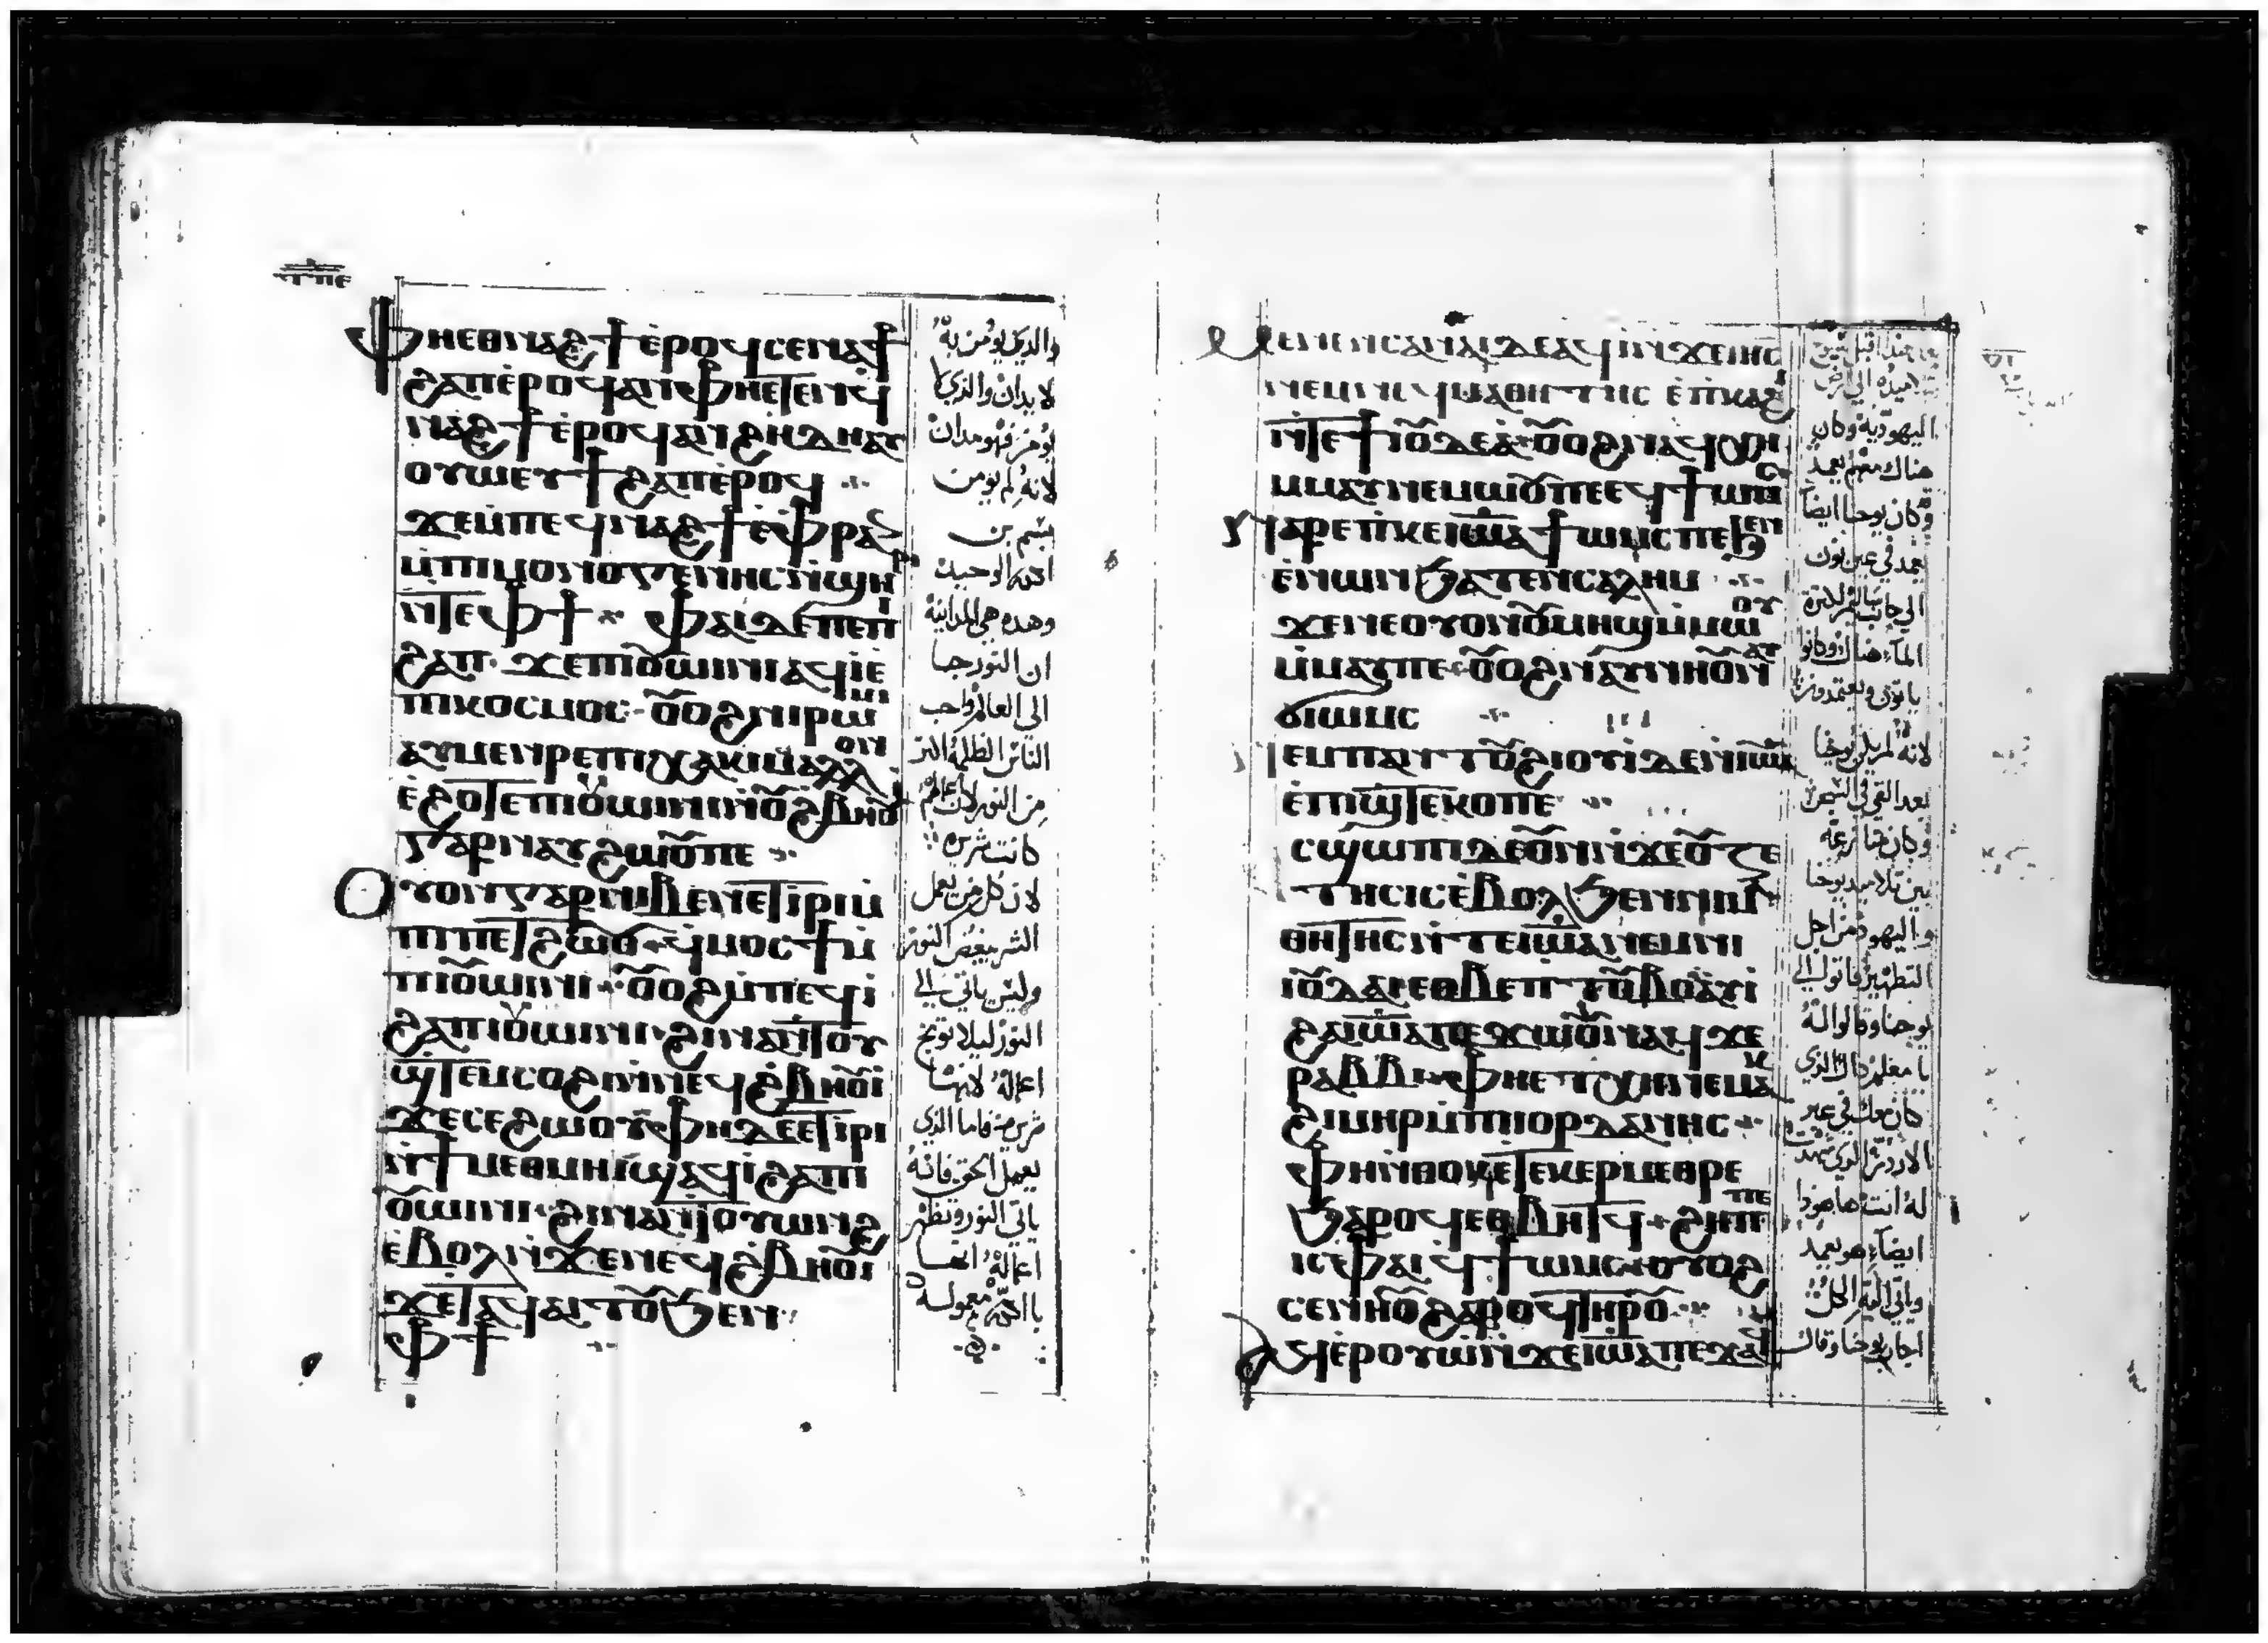 ⲫⲏⲉⲑⲛⲁϩϯ ⲉ̀ⲣⲟϥ ⲥⲉⲛⲁϯ
ϩⲁⲡ ⲉ̀ⲣⲟϥ ⲁⲛ ⲫⲏⲉⲧⲉⲛϥ̀
ⲛⲁϩϯ ⲉ̀ⲣⲟϥ ⲁⲛ ϩⲏⲇⲏ ⲁⲩ
ⲟⲩⲱ ⲉⲩϯϩⲁⲡ ⲉ̀ⲣⲟϥ
ϫⲉ ⲙ̀ⲡⲉϥⲛⲁϩϯ ⲉ̀ⲫⲣⲁⲛ
ⲙ̀ⲡⲓⲙⲟⲛⲟⲅⲉⲛⲏⲥ ⲛ̀ϣⲏⲣⲓ
ⲛ̀ⲧⲉ ⲫϯ ⲫⲁⲓ ⲇⲉ ⲡⲉ ⲡⲓ
ϩⲁⲡ ϫⲉ ⲡⲓⲟⲩⲱⲓⲛⲓ ⲁϥⲓ̀ ⲉ̀
ⲡⲓⲕⲟⲥⲙⲟⲥ ⲟⲩⲟϩ ⲛⲓⲣⲱⲙⲓ
ⲁⲩⲙⲉⲛⲣⲉ ⲡⲓⲭⲁⲕⲓ ⲙⲁⲗⲗⲟⲛ
ⲉ̀ϩⲟⲧⲉ ⲡⲓⲟⲩⲱⲓⲛⲓ ⲛⲟⲩϩⲃⲏⲟⲩⲓ
ⲅⲁⲣ ⲛⲁⲩϩⲱⲟⲩ ⲡⲉ
ⲟⲩⲟⲛ ⲅⲁⲣ ⲛⲓⲃⲉⲛ ⲉⲧⲓⲣⲓ ⲙ̀
ⲡⲓⲡⲉⲧϩⲱⲟⲩ ϥ̀ⲙⲟⲥϯ ⲙ̀
ⲡⲓⲟⲩⲱⲓⲛⲓ ⲟⲩⲟϩ ⲙ̀ⲡⲉϥⲓ̀
ϩⲁ ⲡⲓⲟⲩⲱⲓⲛⲓ ϩⲓⲛⲁ ⲛ̀ⲧⲟⲩ
ϣ̀ⲧⲉⲙⲥⲟϩⲓ ⲛ̀ⲛⲉϥϩ̀ⲃⲏⲟⲩⲓ
ϫⲉ ⲥⲉϩⲱⲟⲩ ⲫⲏ ⲇⲉ ⲉⲧⲓⲣⲓ
ⲛ̀ϯⲙⲉⲑⲙⲏⲓ ϣⲁϥⲓ̀ ϩⲁ ⲡⲓ
ⲟⲩⲱⲓⲛⲓ ϩⲓⲛⲁ ⲛ̀ⲧⲟⲩⲱⲛϩ
ⲉ̀ⲃⲟⲗ ⲛ̀ϫⲉ ⲛⲉϥϩ̀ⲃⲏⲟⲩⲓ
ϫⲉ ⲧⲁϥⲁⲓⲧⲟⲩ ϧⲉⲛ
ⲫϯ
والذي يومن به
لا يدان والذي لا
يومن فهو مدان
لانه لم يومن
باسم بن
الله الوحيد
وهذه هي المداينة
ان النور جا
الى العالم واحب
الناس الظلمة اكثر
من النور لان اعمالهم
كانت شريرة
لان كل من يعمل
الشر يبغض النور
وليس ياتي الى
النور ليلا توبخ
اعماله لانها
شريرة فاما الذي
يعمل الحق فانه
ياتي النور وتظهر
اعماله انها
بالله معمولة
ⲙⲉⲛⲉⲛⲥⲁ ⲛⲁⲓ ⲇⲉ ⲁϥⲓ̀ ⲛ̀ϫⲉ ⲓⲏⲥ
ⲛⲉⲙ ⲛⲉϥⲙⲁⲑⲏⲧⲏⲥ ⲉ̀ⲡⲕⲁϩⲓ
ⲛ̀ⲧⲉ ϯⲓⲟⲩⲇⲉⲁ ⲟⲩⲟϩ ⲛⲁϥⲭⲏ
ⲙ̀ⲙⲁⲩ ⲛⲉⲙⲱⲟⲩ ⲡⲉ ⲉϥϯⲱⲙⲥ
ⲛⲁⲣⲉ ⲡⲕⲉⲓⲱⲁ ϯⲱⲙⲥ ⲡⲉ ϧⲉⲛ
ⲉⲛⲱⲛ ϧⲁⲧⲉⲛ ⲥⲁⲗⲏⲙ
ϫⲉ ⲛⲉ ⲟⲩⲟⲛ ⲟⲩⲙⲏϣ ⲙ̀ⲙⲱⲟⲩ
ⲙ̀ⲙⲁⲩ ⲡⲉ ⲟⲩⲟϩ ⲛⲁⲩⲛⲏⲟⲩ ⲁⲩ
ϭⲓⲱⲙⲥ
ⲛⲉⲙⲡⲁⲧⲟⲩϩⲓⲟⲩⲓ̀ ⲇⲉ ⲛ̀ⲓⲱⲁ
ⲉ̀ⲡϣⲧⲉⲕⲟ ⲡⲉ
ⲁⲥϣⲱⲡⲓ ⲇⲉ ⲟⲩⲛ ⲛ̀ϫⲉ ⲟⲩⲍⲉ
ⲧⲏⲥⲓⲥ ⲉ̀ⲃⲟⲗ ϧⲉⲛ ⲛⲓⲙⲁ
ⲑⲏⲧⲏⲥ ⲛ̀ⲧⲉ ⲓⲱⲁ ⲛⲉⲙ ⲛⲓ
ⲓⲟⲩⲇⲁⲓ ⲉⲑⲃⲉ ⲡⲧⲟⲩⲃⲟ ⲁⲩⲓ̀
ϩⲁ ⲓⲱⲁ ⲡⲉϫⲱⲟⲩ ⲛⲁϥ ϫⲉ
ⲣⲁⲃⲃⲓ ⲫⲏⲉⲧⲭⲏ ⲛⲉⲙⲁⲕ
ϩⲓⲙⲏⲣ ⲙ̀ⲡⲓⲓⲟⲣⲇⲁⲛⲏⲥ
ⲫⲏ ⲛ̀ⲑⲟⲕ ⲉⲧⲉⲕⲉⲣⲙⲉⲑⲣⲉ
ϧⲁⲣⲟϥ ⲉⲑⲃⲏⲧϥ ϩⲏⲡⲡⲉ
ⲓⲥ ⲫⲁⲓ ϥ̀ϯⲱⲙⲥ ⲟⲩⲟϩ
ⲥⲉⲛⲏⲟⲩ ϩⲁⲣⲟϥ ⲧⲏⲣⲟⲩ
ⲁϥⲉⲣⲟⲩⲱ̀ ⲛ̀ϫⲉ ⲓⲱⲁ ⲡⲉϫⲁϥ
اليهودية وكان
هناك معهم يعمد
وكان يوحنا ايضا
يعمد في عين نون
الى جانب ساليم لكثرة
الماء هناك وكانوا
ياتون ويعتمدون
لانه لم يكن يوحنا
بعد القي في السجن
وكان منازعة
بين تلاميذ يوحنا
واليهود من اجل
التطهير فاتوا الى
يوحنا وقالوا له
يا معلم ذاك الذي
كان معك في عبر
الاردن الذي شهدت
له انت ها هوذا
ايضا هو يعمد
وياتي اليه الكل
اجاب يوحنا وقال